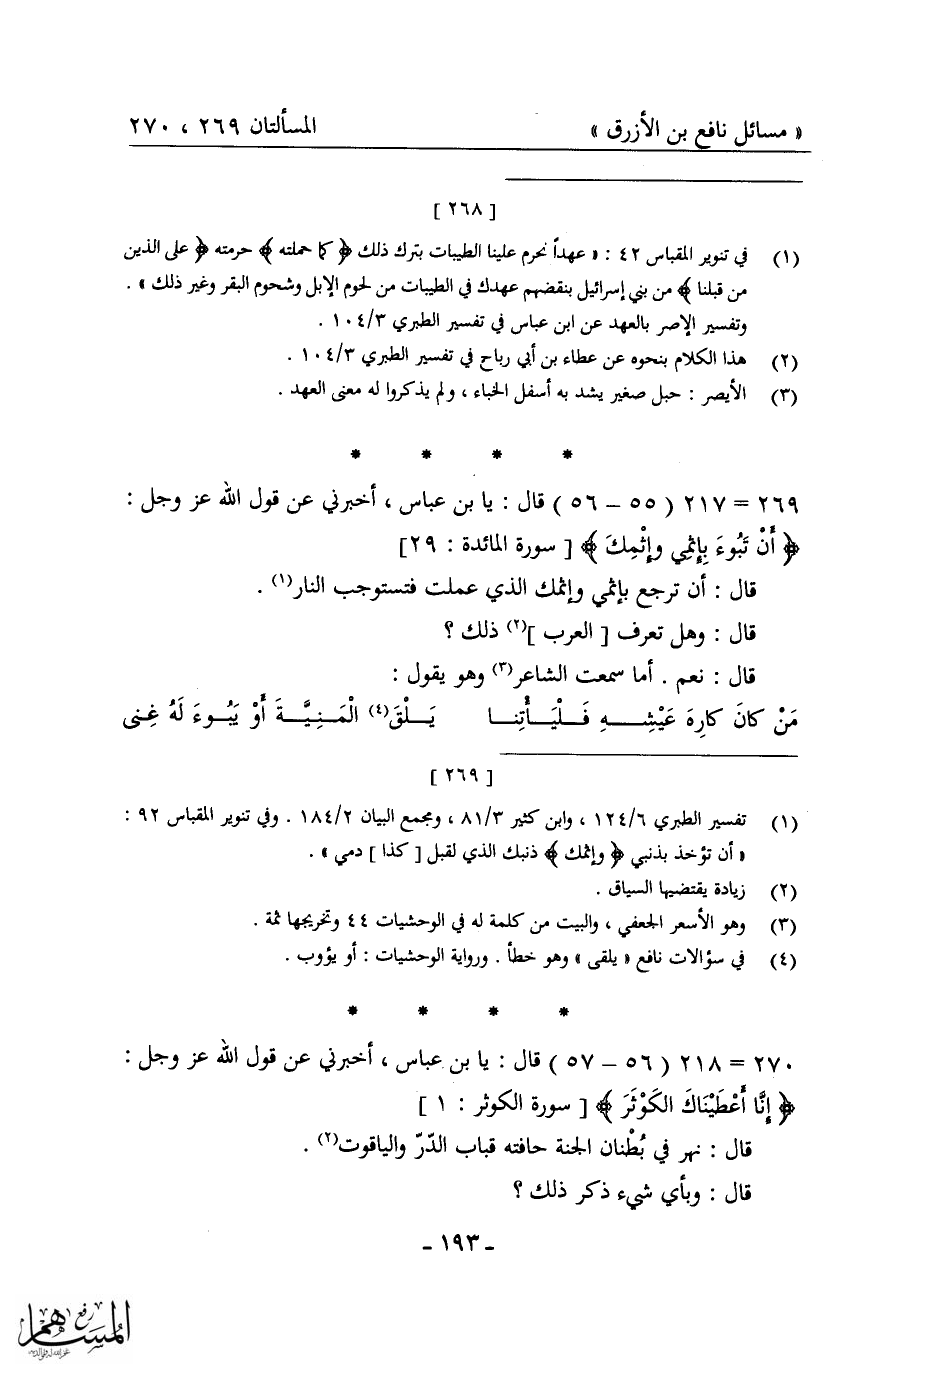 « مسائل نافع بن الأزرق » المسألتان ٢٦٩ ، ٢٧٠
[ ٢٦٨ ]
(١) في تنوير المقباس ٤٢ : « عهداً نحرم علينا الطيبات بترك ذلك ﴿ كما حملته ﴾ حرمته ﴿ على الذين
من قبلنا ﴾ من بني إسرائيل بنقضهم عهدك في الطيبات من لحوم الإبل وشحوم البقر وغير ذلك » .
وتفسير الإصر بالعهد عن ابن عباس في تفسير الطبري ١٠٤/٣ .
(٢) هذا الكلام بنحوه عن عطاء بن أبي رباح في تفسير الطبري ١٠٤/٣ .
(٣) الأيصر : حبل صغير يشد به أسفل الخباء ، ولم يذكروا له معنى العهد .
* * * *
٢٦٩ = ٢١٧ ( ٥٥ – ٥٦ ) قال : يا بن عباس ، أخبرني عن قول الله عز وجل :
﴿ أَنْ تَبُوءَ بِإِثْمِي وإِثْمِكَ ﴾ [ سورة المائدة : ٢٩]
قال : أن ترجع بإثمي وإثمك الذي عملت فتستوجب النار(١) .
قال : وهل تعرف [ العرب ](٢) ذلك ؟
قال : نعم . أما سمعت الشاعر(٣) وهو يقول :
مَنْ كانَ كارِهَ عَيْشِـهِ فَـلْيَـأْتِنـا يَـلْقَ(٤) الْمَنِيَّـةَ أَوْ يَبُـوءَ لَهُ غِنى
[ ٢٦٩ ]
(١) تفسير الطبري ١٢٤/٦ ، وابن كثير ٨١/٣ ، ومجمع البيان ١٨٤/٢ . وفي تنوير المقباس ٩٢ :
« أن تؤخذ بذنبي ﴿ وإثمك ﴾ ذنبك الذي لقبل [ كذا ] دمي » .
(٢) زيادة يقتضيها السياق .
(٣) وهو الأسعر الجعفي ، والبيت من كلمة له في الوحشيات ٤٤ وتخريجها ثمة .
(٤) في سؤالات نافع « يلقى » وهو خطأ . ورواية الوحشيات : أو يؤوب .
* * * *
٢٧٠ = ٢١٨ ( ٥٦ – ٥٧ ) قال : يا بن عباس ، أخبرني عن قول الله عز وجل :
﴿ إِنَّا أَعْطَيْنَاكَ الكَوْثَرَ ﴾ [ سورة الكوثر : ١ ]
قال : نهر في بُطْنان الجنة حافته قباب الدّرّ والياقوت(٢) .
قال : وبأي شيء ذكر ذلك ؟
- ١٩٣ -
رفع
المساهم